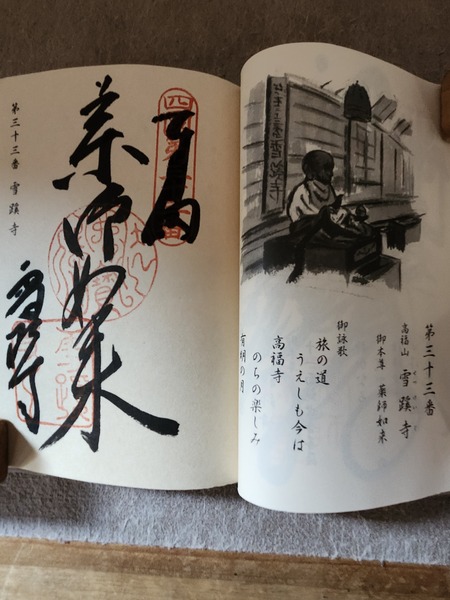 第三十三番
高福山 雪蹊寺
御本尊 薬師如来
御詠歌
旅の道
うえしも今は
高福寺
のちの楽しみ
有明の月
薬師如来
雪蹊寺
第三十三番 雪蹊寺